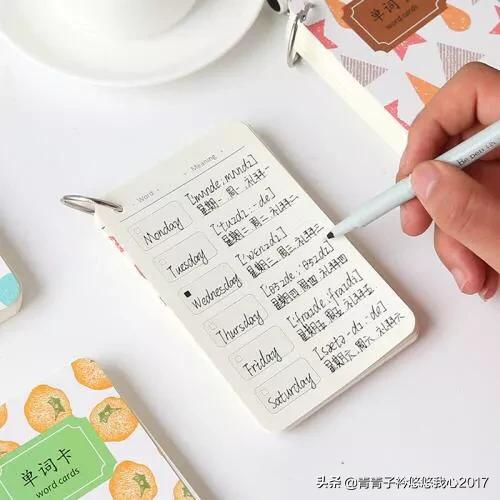 单词卡
word cards
Word
Meaning
Monday
[mʌnde; mʌndɪ]
星期一 周一 礼拜一
Tuesday
[tuzdɪ; -de]
星期二 周二 礼拜二
Wednesday
['wɛnzdɪ]
星期三 周三 礼拜三
Thursday
星期四 周四 礼拜四
Friday
[fraɪde; fraɪdɪ]
星期五 周五 礼拜五
Saturday
[sætɚ-dɪ -de]
星期六 周六 礼拜六
单词卡
word cards
头条 @青青子衿悠悠我心2017